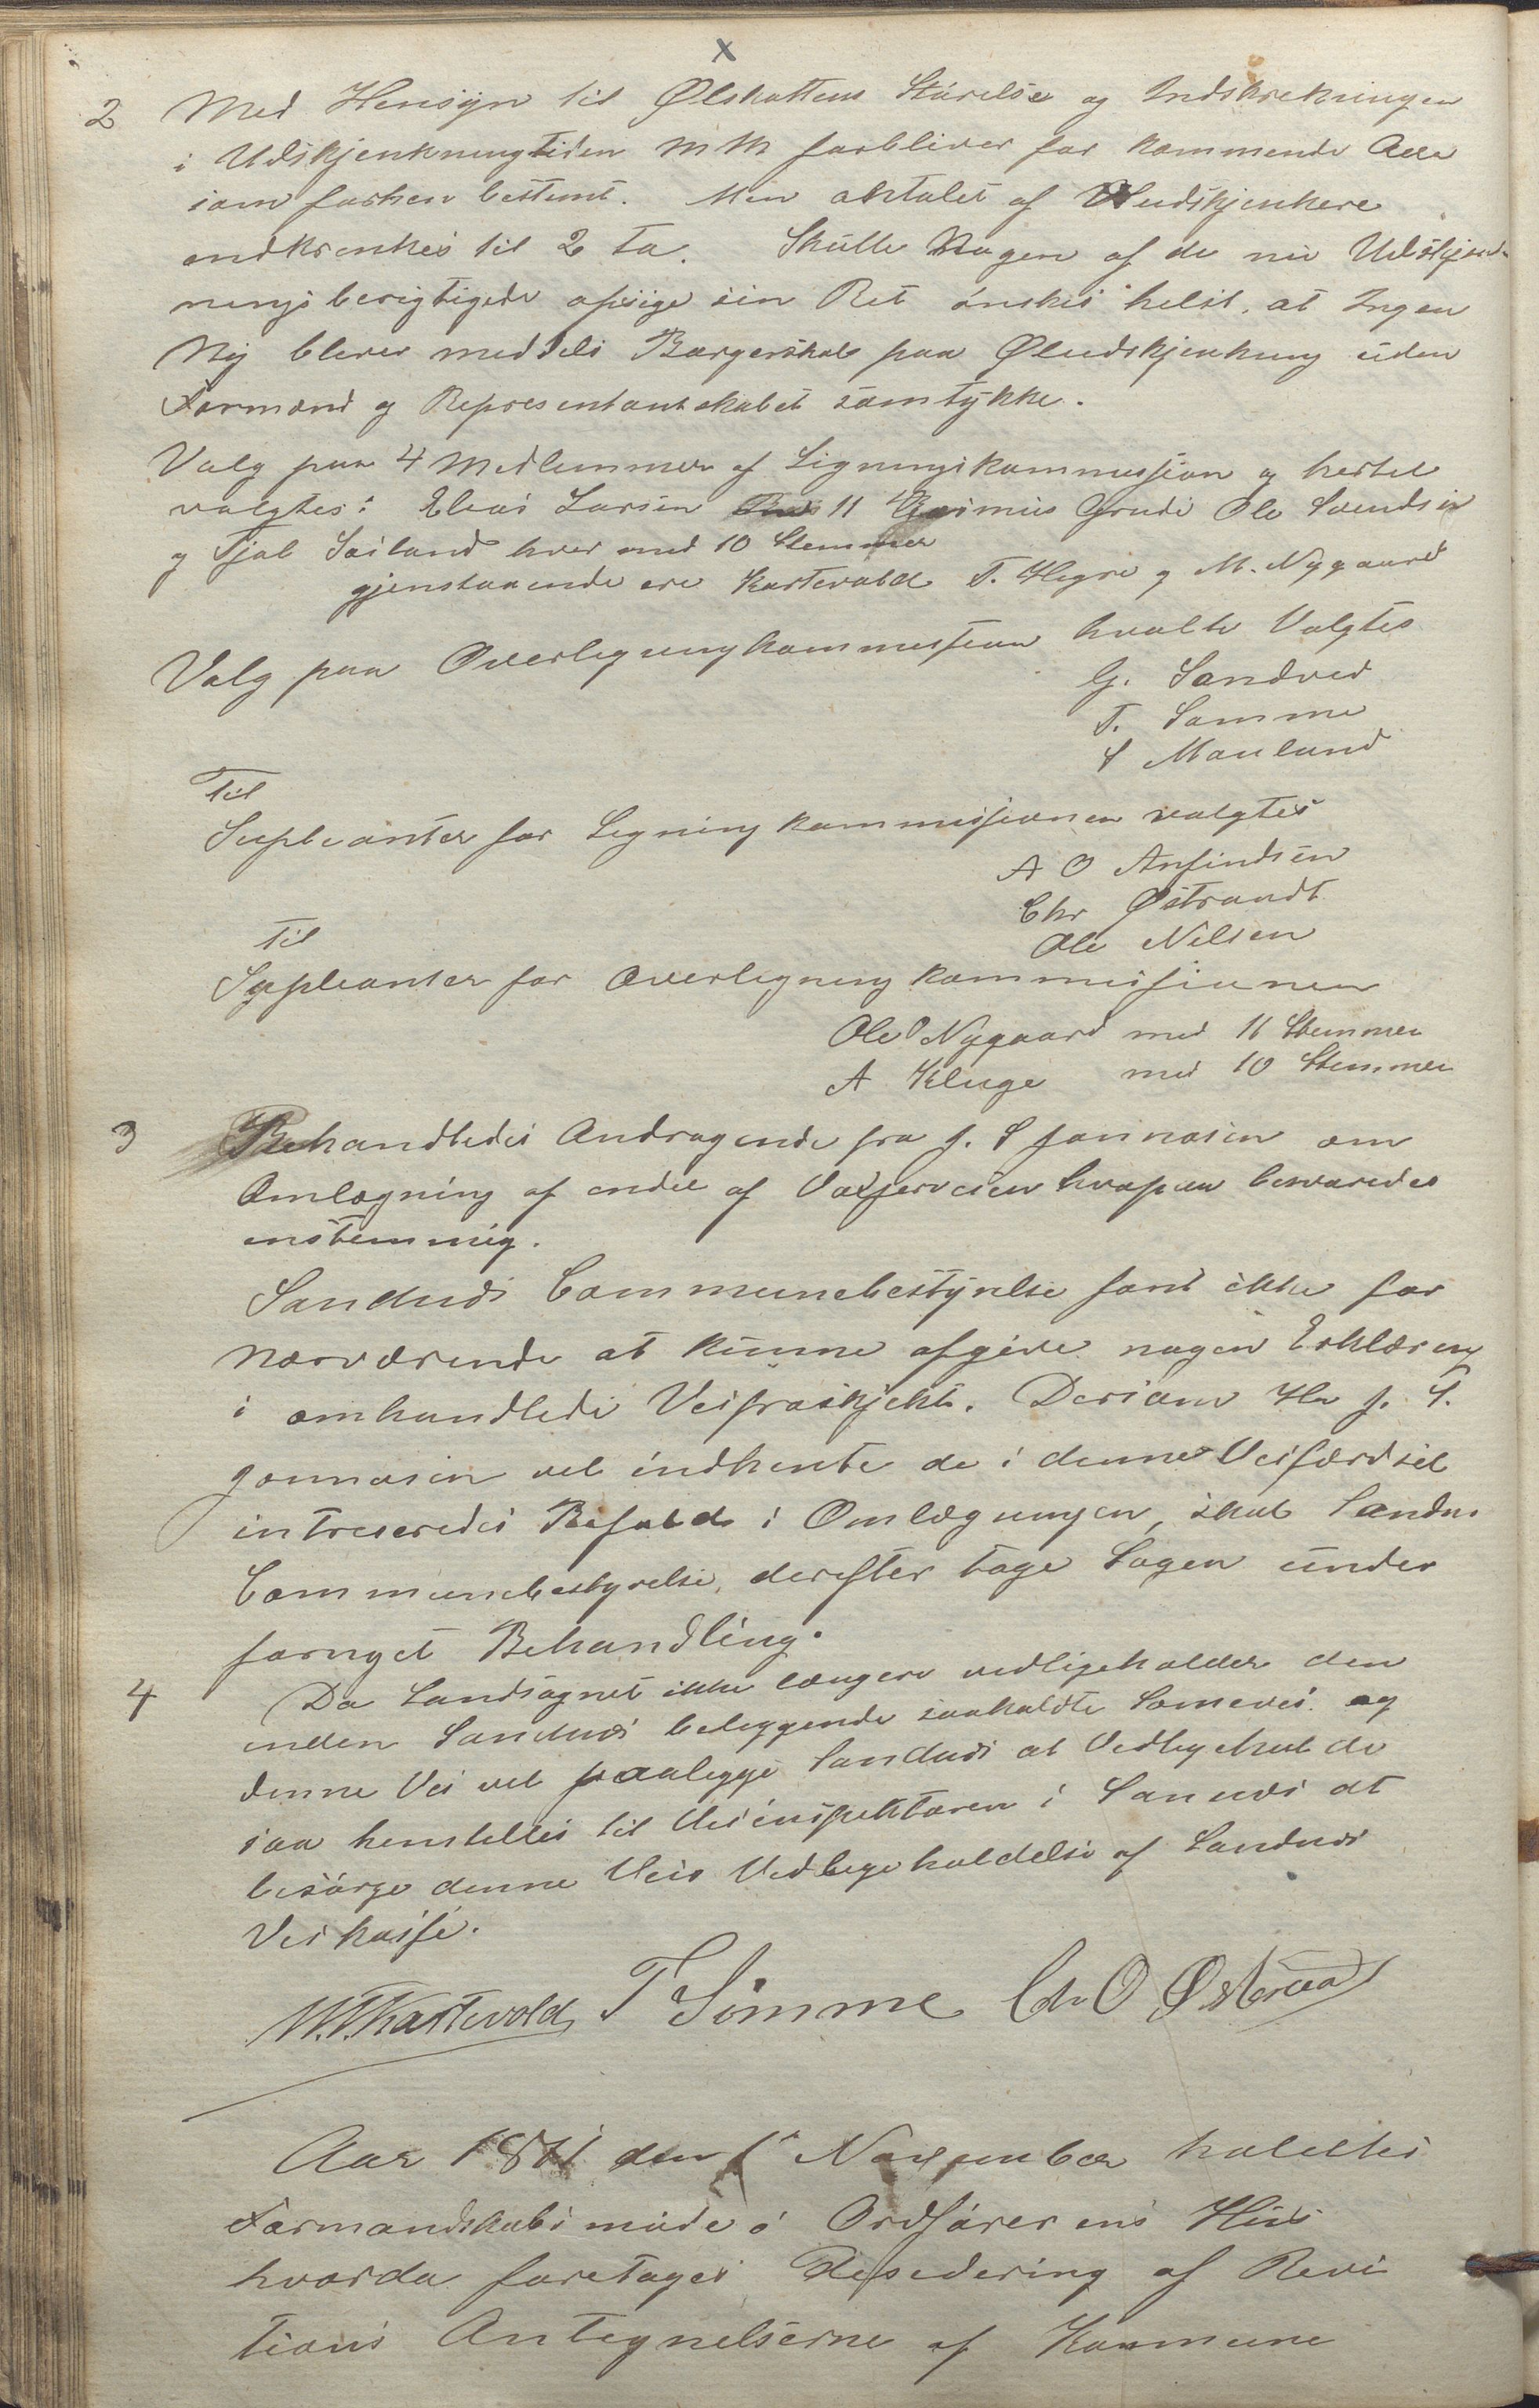 x
2 Med Hensyn til Ølskattens Størelse og Indskrekningen
i Udskjenkningtiden m m forbliver for kommende Aar
som forhen bestemt. Men antalet af Øludskjenkere
indkrenkes til 2 to. Skulle Nogen af de nu Udskjenk-
nings berigtigede opsige sin Ret ønskes helst, at Ingen
Ny bliver meddels Borgerskab paa Øludskjenkning uden
Formænd og Representantskabet samtykke.
Valg paa 4 Medlemmer af Ligningskommission og hertil
valgtes: Elias Larsen 11 Rasmus Grude Ole Svendsen
og Tjøl Sviland hver med 10 Stemmer
gjenstaaende ere Kartevold T. Hegre og M. Nygaard
Valg paa Overligningkommission hvolte Valgtes
G. Sandved
T. Somme
S Mauland
Til
Supleanter for Ligningkommissionen valgtes
A O Anfindsen
Chr Østrandt
Ole Nilsen
Til
Supleanter for Overligningkommissionen
Ole Nygaard med 11 Stemmer
A Kluge med 10 Stemmer
3 Behandledes Andragende fra J. S Jonnasen om
Omlægning af endel af veien hvorpaa besvaredes
enstemmig.
Sandnæs Communebestyrelse fant ikke for
nærværende at kunne afgive nogen Erklæring
i omhandlede Veiproskjekt. Dersom Hr J. S.
Jonnasen vel indhente de i denne Veifærdsel
intreseredes Bifald i Omlægningen, skal Sandnes
Communebestyrelse, derefter tage Sagen under
fornyet Behandling.
4 Da Landsognet ikke længere vedligeholder den
inden Sandnæs beliggende saakaldte Somevei og
denne Vei vel paalegge Sandnæs at Vedligeholde
saa henstilles til Veiinspektøren i Sannæs at
besørge denne Veis Vedligeholdelse af Sandnæs
Veikasse.
W.T.Kartevold T Sømme Ch O Østraadt
Aar 1871 den 1 November holdtes
Formandskabs møde i Ordførerens Hus
hvorda foretages Desedering af Revi
tions Antegnelserne af Kommune